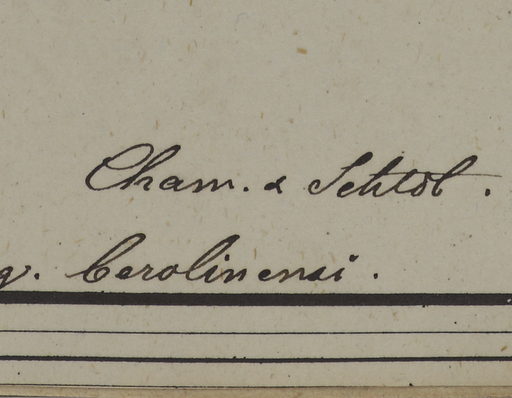 Cham. & Schldl.
g. Berolinensi.